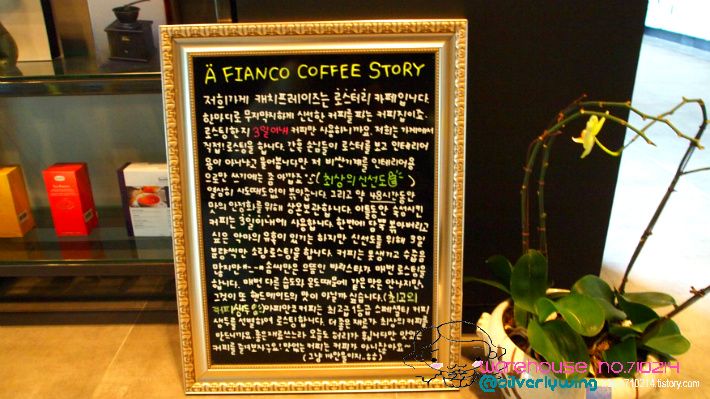 Ä FIANCO COFFEE STORY
저희가게 캐치프레이즈는 로스터리 카페입니다.
한마디로 무지막지하게 신선한 커피를 파는 커피집이죠
로스팅한지 3일이내 커피만 사용하니까요. 저희는 가게에서
직접! 로스팅을 합니다. 간혹 손님들이 로스터를 보고 인테리어
용이 아니냐고 물어봅니다만 저 비싼기계를 인테리어용
으로만 쓰기에는 좀 아깝죠 (최상의 신선도)
열심히 시도때도없이 볶아준답니다. 그리고 약 48시간동안
맛의 안정화를 위해 상온보관합니다. 이틀동안 숙성시킨
커피는 3일이내에 사용합니다. 한번에 많이 볶아버리고
싶은 악마의 유혹이 있기는 하지만 신선도를 위해 3일
분량씩만 소량로스팅을 합니다. 커피는 못생기고 수줍음
많지만 솜씨만은 으뜸인 바리스타가 매번 로스팅을
합니다. 매번 다른 습도와 온도때문에 같은 맛은 안나지만,
그것이 또 핸드메이드의 맛이 아닐까 싶습니다. (최고의
커피생두) 아피안코커피는 최고급 1등급 스페셜티 커피
생두를 선별하여 로스팅합니다. 더 좋은 재료가 최상의 커피를
만드니까요. 좋은 재료쓰느라 오늘도 허리가 휩니다만 맛있는
커피를 즐겨보시구요! 맛없는 커피는 커피가 아니잖아요~
warehouse no.710214
@silverlywing
710214.tistory.com